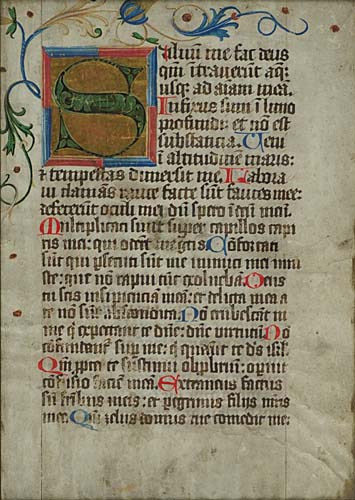 Saluum me fac deus
qm̄ ītrauerūt aq̄:
usq; ad aīam meā.
Infixus sum ī limo
profūdi: et nō est
substantia. Ueni
ī altitudinē maris:
et tempestas dimersit me. Labora
ui clamās rauce facte sūt fauces mee:
defecerūt oculi mei dū spero ī deū meū.
Multiplicati sunt super capillos capi
tis mei: qui oderūt me gratis. Cōfortati
sūt qui psecuti sūt me inimici mei iniu
ste: que nō rapui tūc exoluebā. Deus
tu scis insipientiā meā: et delicta mea a
te nō sūt abscondita. Nō erubescāt in
me q̄ expectant te dn̄e: dn̄e virtutū. Nō
confundant̄ sup me: q̄ querūt te ds̄ isrl̄.
Qm̄ ppter te sustinui obprobriū: opuit
confusio faciē meā. Extraneus factus
sū fratribus meis: et peregrinus filijs mr̄is
mee. Qm̄ zelus domus tue comedit me: